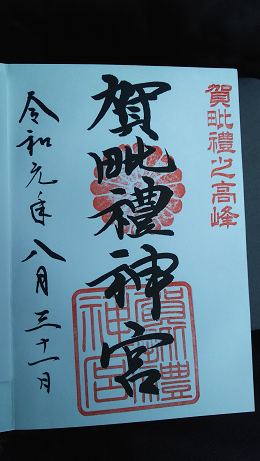 賀毗禮之高峰
賀毗禮神宮
令和元年八月三十一日
賀毗禮
神宮